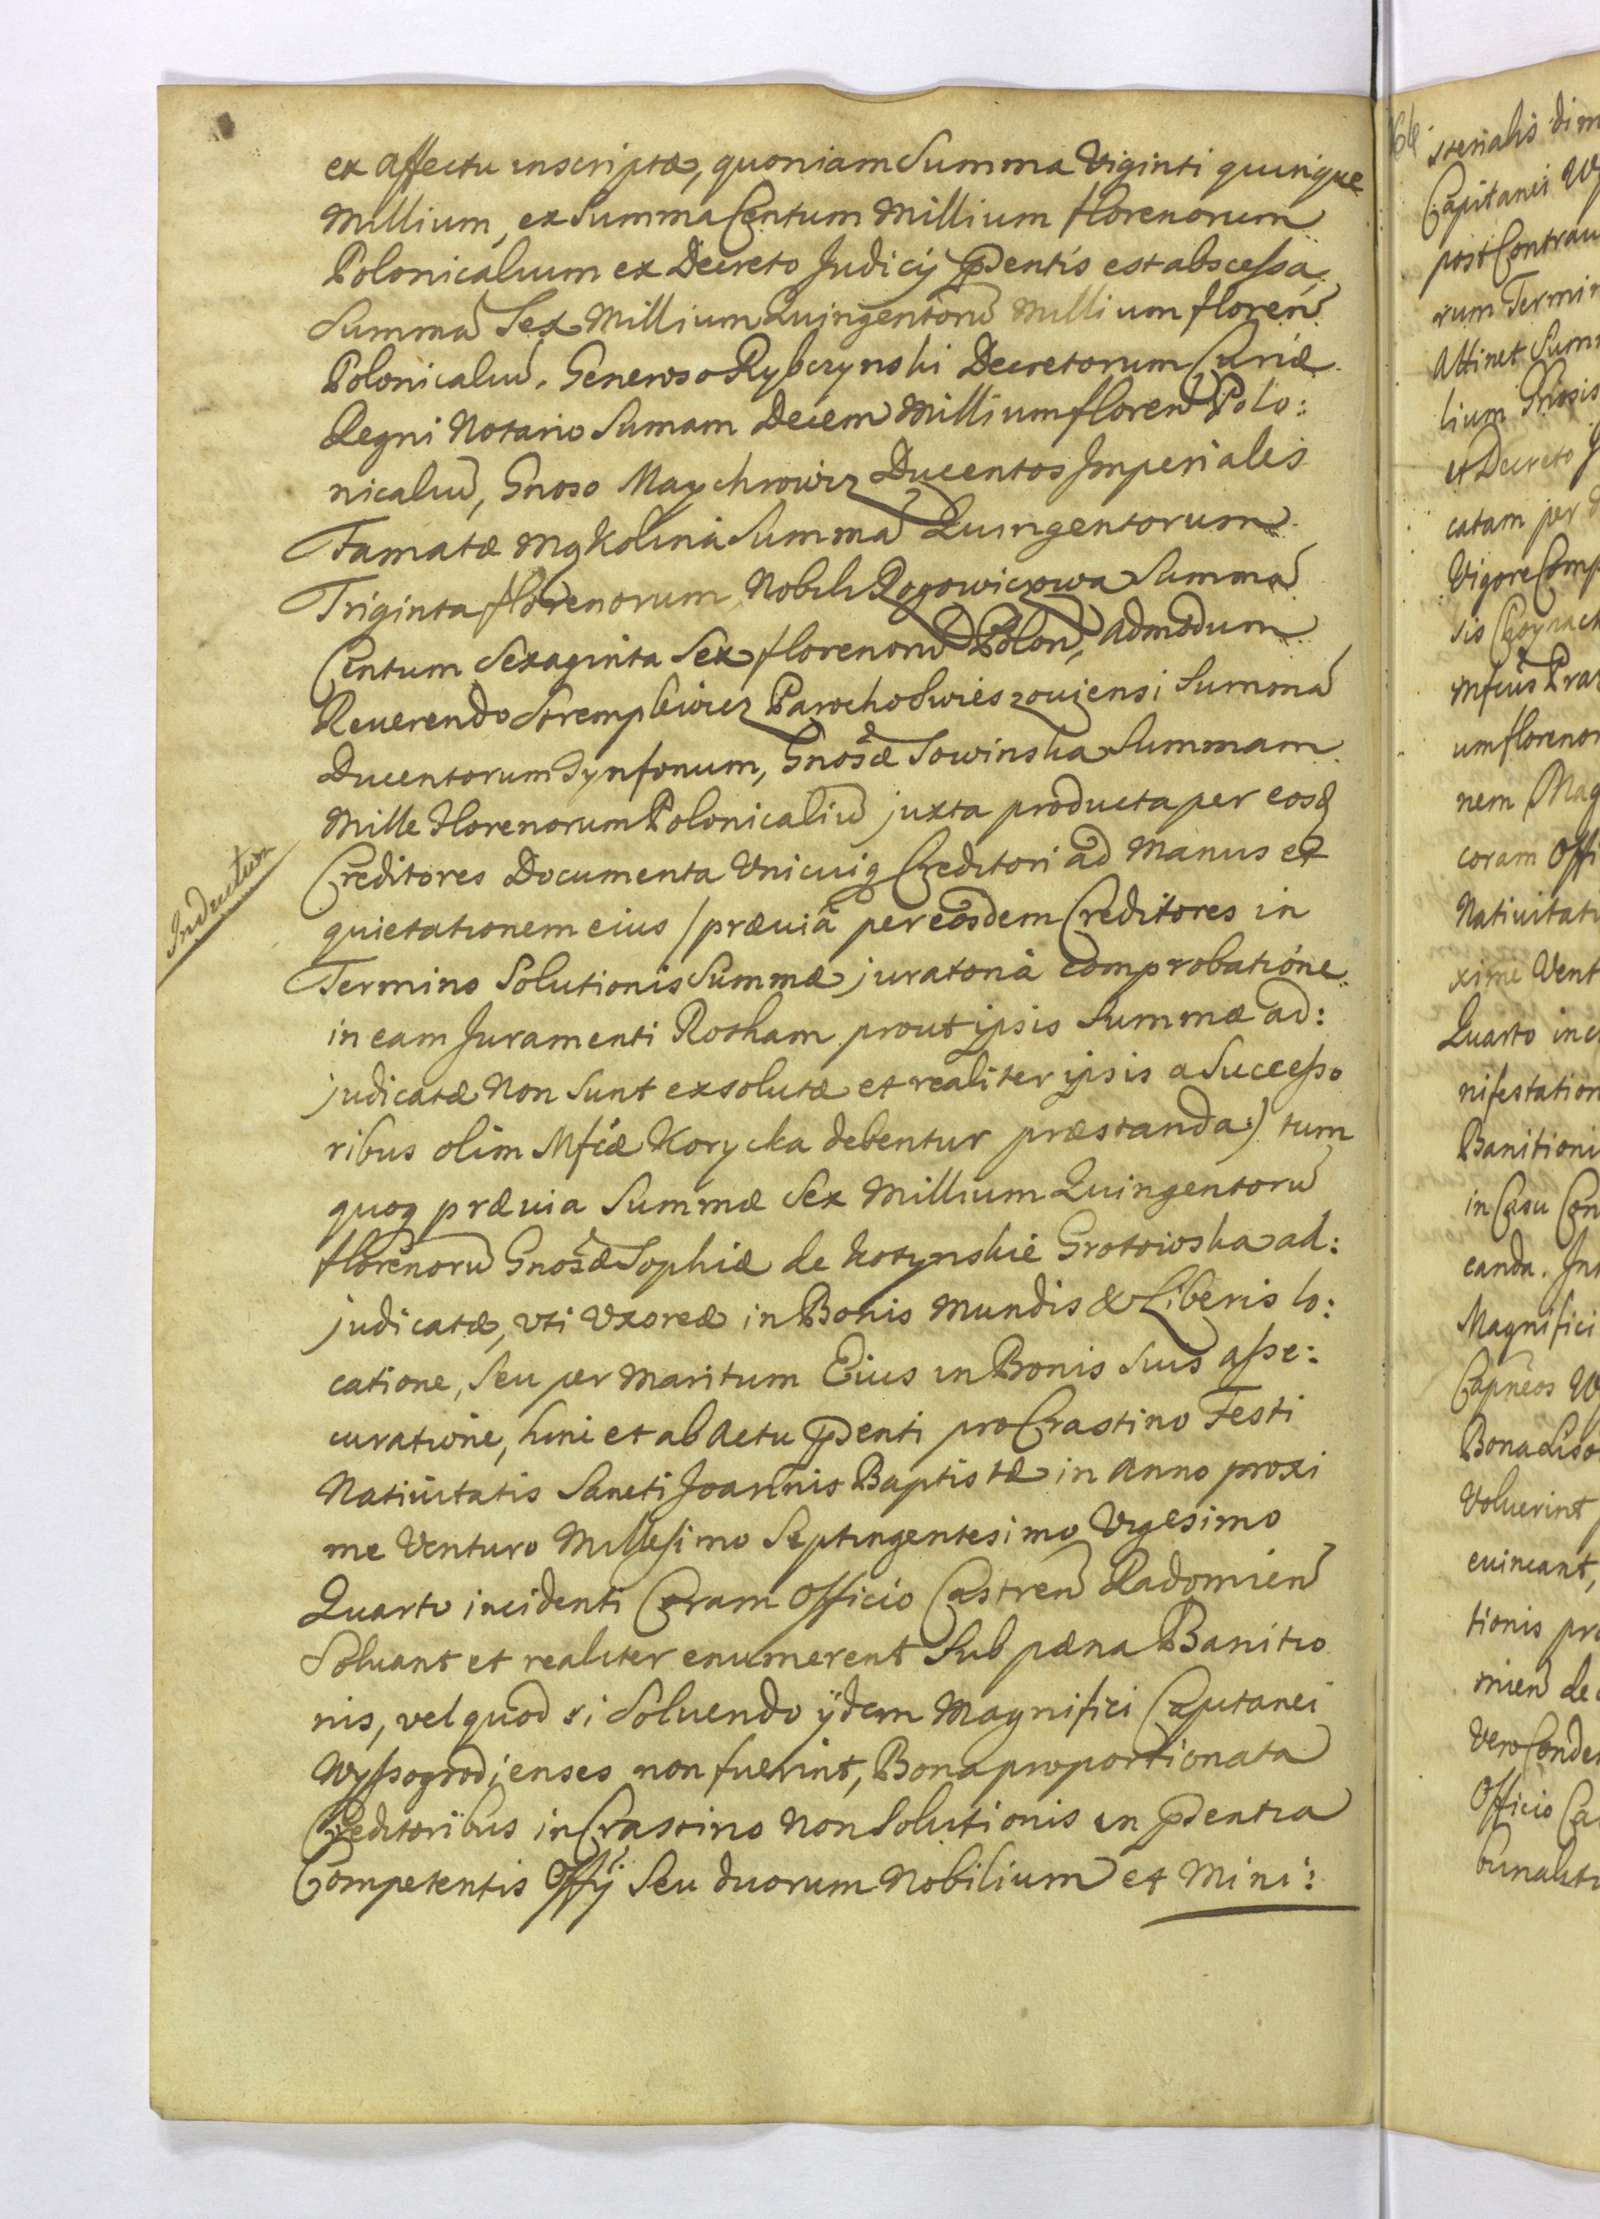 ex affectu inscriptæ, quoniam Summa Viginti quinque
Millium, ex Summa Centum Millium florenorum
Polonicalium ex Decreto Judicij pdentis est abscessa,
Summã Sex Millium Quingentorũ Millium floren̄
Polonicaliũ. Generoso Rybczynski Decretorum Curiæ
Regni Notario Sumam Decem Millium floren̄ Polo:
nicaliũ, Gnoso Maychrowicz Ducentos Imperiales
Famatæ Mykolina Summã Quingentorum
Triginta florenorum Nobili Rogowiczowa Summã
Centum Sexaginta Sex florenorũ Polon̄, admodum
Reuerendo Stremplewicz Parocho Swieszouiensi Summã
Ducentorum Tynfonum, Gnosæ Sowinska Summam
Mille Florenorum Polonicaliũ juxta producta per eosq
Creditores Documenta Unicuiq Creditori ad Manus et
quietationem eius /præuiâ per eosdem Creditores in
Termino Solutionis Summæ juratoriâ comprobatione
in eam Juramenti Rotham prout ipsis Summæ ad:
judicatæ Non Sunt exsolutæ et realiter ipsis a Successo
ribus olim Mfcæ Korycka debentur præstanda:) tum
quoq præuia Summæ Sex Millium Quingentorũ
florenorũ Gnosæ Sophiæ de Kotynskie Grotowska ad:
judicatæ, uti Uxoreæ in Bonis Mundis & Liberis lo:
catione, Seu per Maritum Eius in Bonis Suis asse:
curatione, hinc et ab Actu pdenti pro Crastino Festi
Natiuitatis Sancti Joannis Baptistæ in Anno proxi
me Venturo Millesimo Septingentesimo Vigesimo
Quarto incidenti Coram Officio Castren̄ Radomien̄
Soluant et realiter enumerent Sub pæna Banitio
nis, vel quod si Soluendo ijdem Magnifici Capitanei
Wyssogrodienses non fuerint, Bona proportionata
Creditoribus in Crastino Non Solutionis in pdentia
Competentis Offij Seu duorum Nobilium et Mini:
Inductum
sterialis
Capitanei
post
rum
Attinet
lium
et Decreto
catam per
Vigore
sis
Mfcus
um floreno
nem Mag
coram Offi
Natiuitati
xime Vent
Quarto in
nifestation
Banitioni
in Casu Con
canda. In
Magnifici
Capneos
Bona
Voluerint
euincant,
tionis pro
mien de
Vero Conde
Officio Ca